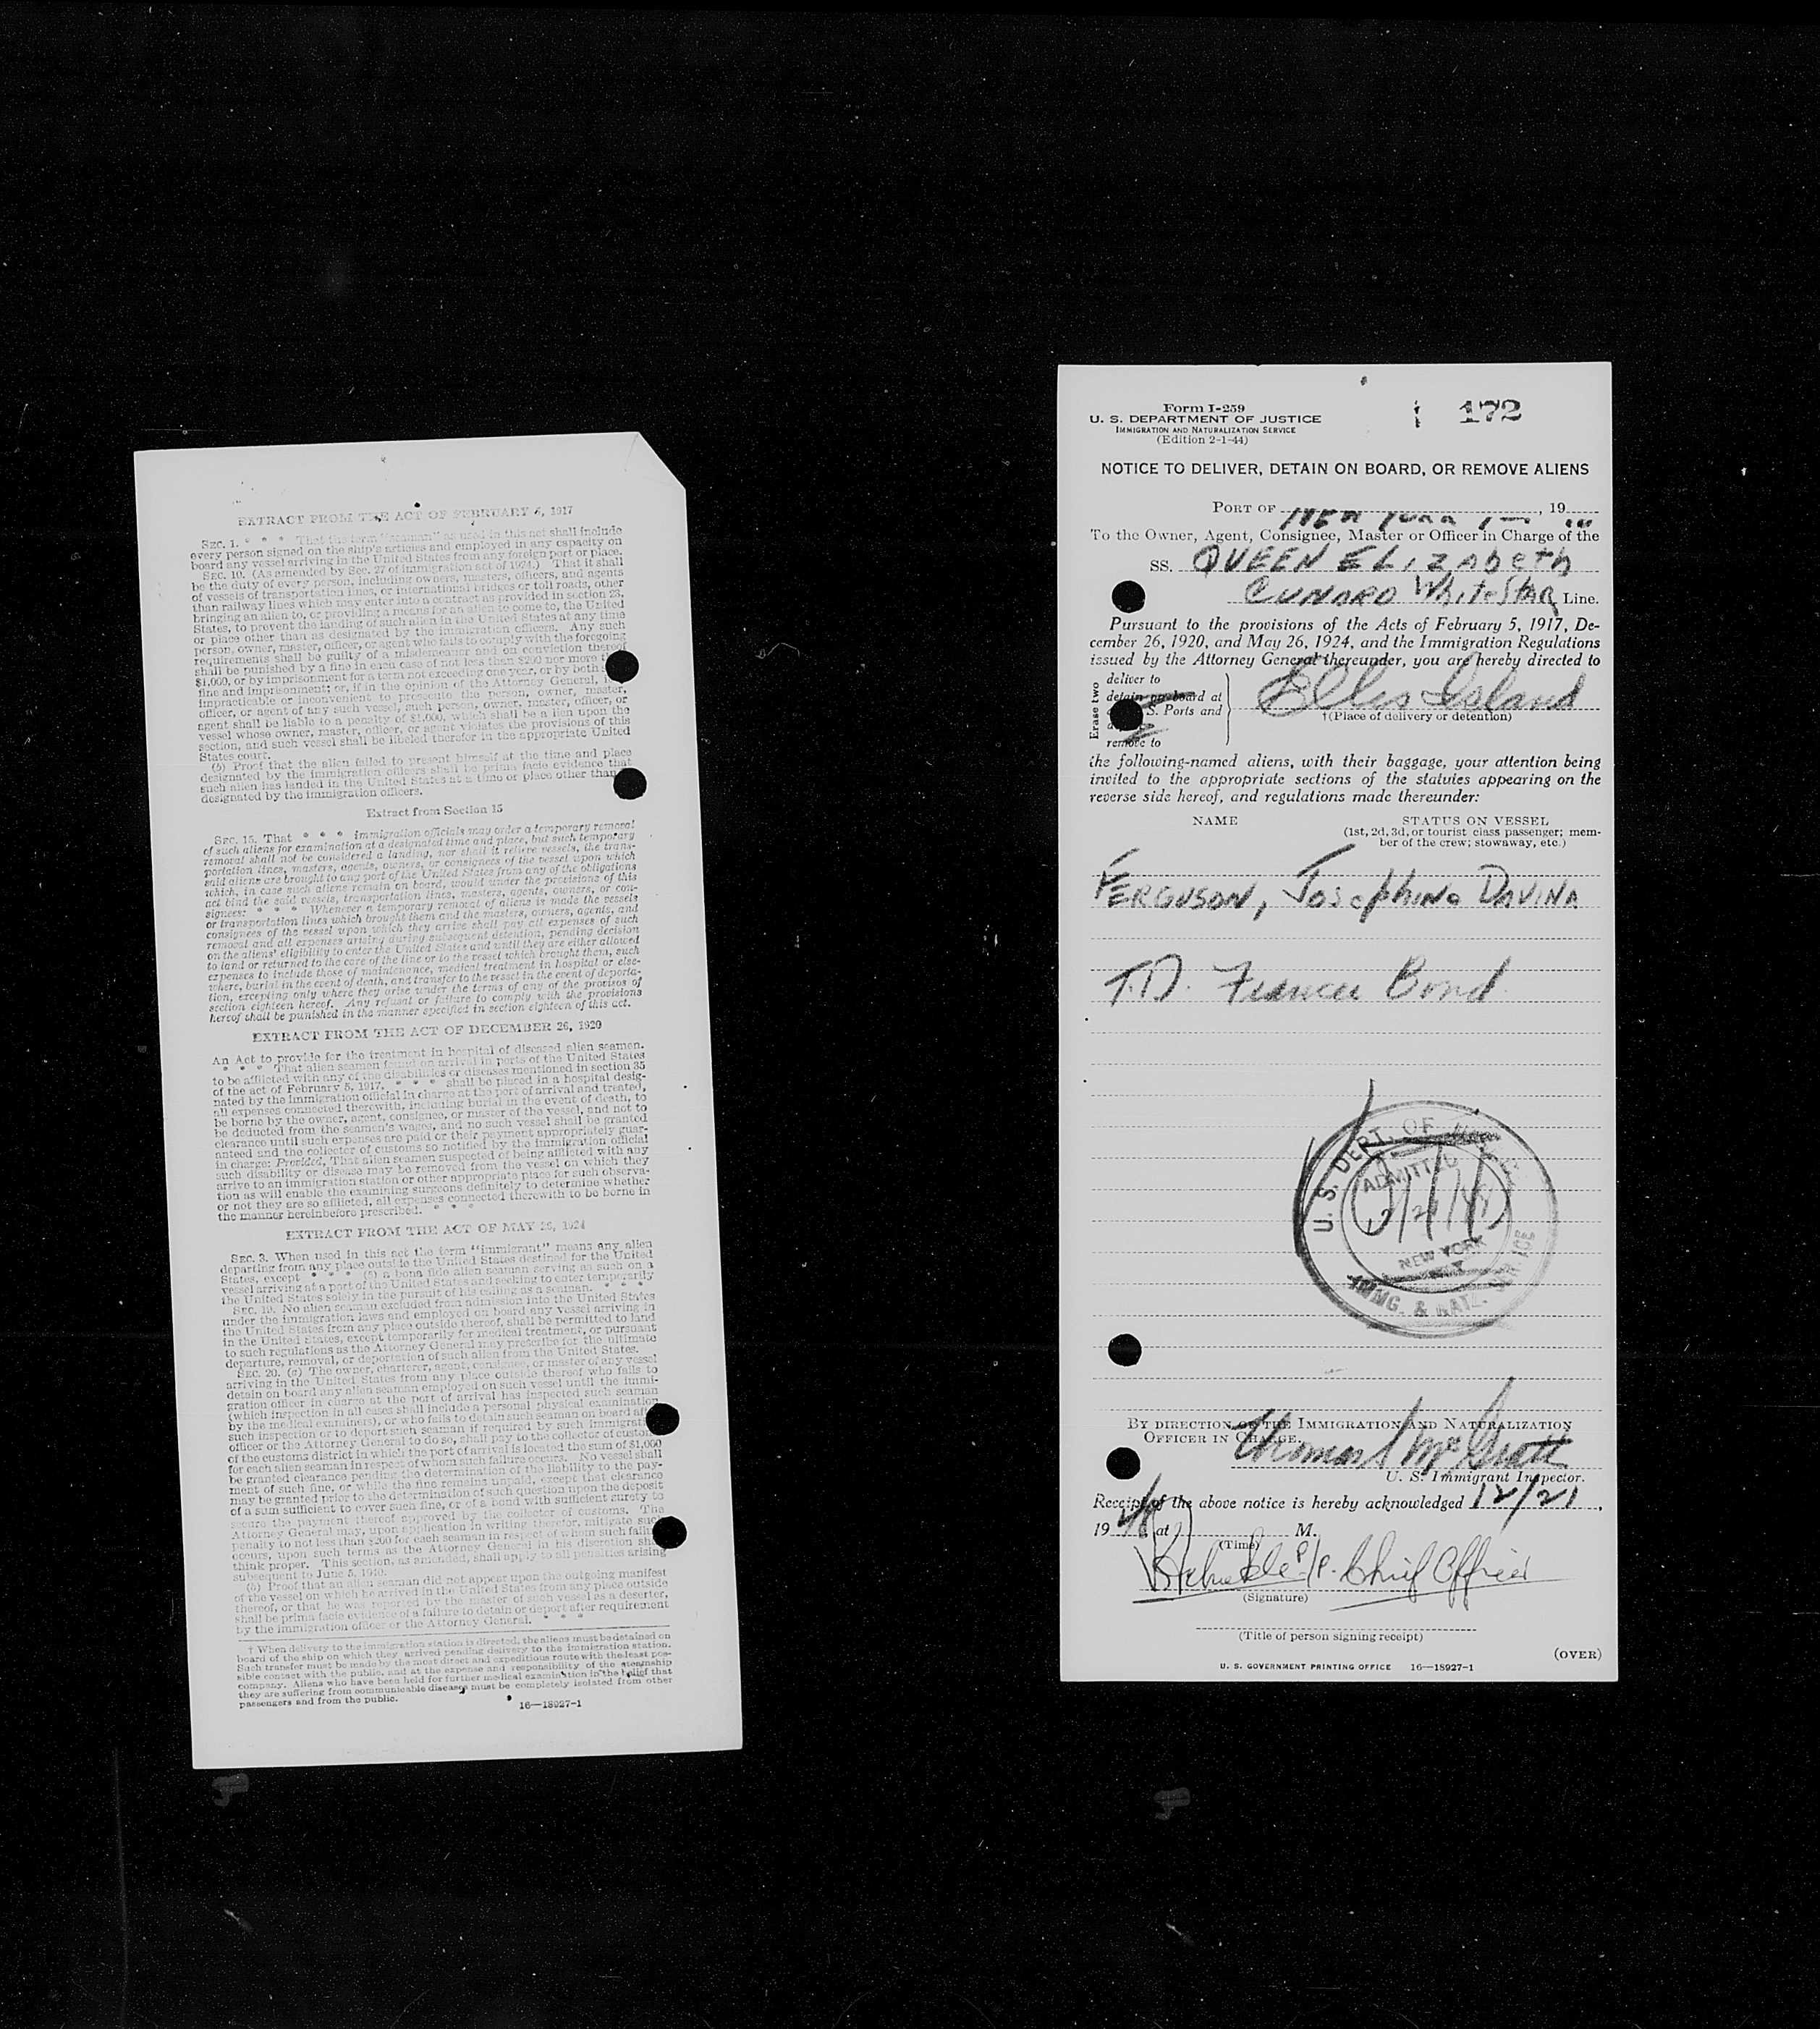 EXTRACT FROM THE ACT OF FEBRUARY 5, 1917
SEC. 1. * * * That the term "seaman" as used in this act shall include
every person signed on the ship's articles and employed in any capacity on
board any vessel arriving in the United States from any foreign port or place.
SEC. 10. (As amended by Sec. 27 of immigration act of 1924.) That it shall
be the duty of every person, including owners, masters, officers, and agents
of vessels of transportation lines, or international bridges or toll roads, other
than railway lines which may enter into a contract as provided in section 23,
bringing an alien to, or providing a means for an alien to come to, the United
States, to prevent the landing of such alien in the United States at any time
or place other than as designated by the immigration officers. Any such
person, owner, master, officer, or agent who fails to comply with the foregoing
requirements shall be guilty of a misdemeanor and on conviction thereof
shall be punished by a fine in each case of not less than $200 nor more
$1,000, or by imprisonment for a term not exceeding one year, or by both
fine and imprisonment; or, if in the opinion of the Attorney General,
impracticable or inconvenient to prosecute the person, owner, master,
officer, or agent of any such vessel, such person, owner, master, officer, or
agent shall be liable to a penalty of $1,000, which shall be a lien upon the
vessel whose owner, master, officer, or agent violates the provisions of this
section, and such vessel shall be libeled therefor in the appropriate United
States court.
(b) Proof that the alien failed to present himself at the time and place
designated by the immigration officers shall be prima facie evidence that
such alien has landed in the United States at a time or place other than
designated by the immigration officers.
Extract from Section 15
SEC. 15. That * * * immigration officials may order a temporary removal
of such aliens for examination at a designated time and place, but such temporary
removal shall not be considered a landing, nor shall it relieve vessels, the trans-
portation lines, masters, agents, owners, or consignees of the vessel upon which
said aliens are brought to any port of the United States from any of the obligations
which, in case such aliens remain on board, would under the provisions of this
act bind the said vessels, transportation lines, masters, agents, owners, or con-
signees: * * * Whenever a temporary removal of aliens is made the vessels
or transportation lines which brought them and the masters, owners, agents, and
consignees of the vessel upon which they arrive shall pay all expenses of such
removal and all expenses arising during subsequent detention, pending decision
on the aliens' eligibility to enter the United States and until they are either allowed
to land or returned to the care of the line or to the vessel which brought them, such
expenses to include those of maintenance, medical treatment in hospital or else-
where, burial in the event of death, and transfer to the vessel in the event of deporta-
tion, excepting only where they arise under the terms of any of the provisos of
section eighteen hereof. Any refusal or failure to comply with the provisions
hereof shall be punished in the manner specified in section eighteen of this act.
EXTRACT FROM THE ACT OF DECEMBER 26, 1920
An Act to provide for the treatment in hospital of diseased alien seamen.
* * * That alien seamen found on arrival in ports of the United States
to be afflicted with any of the disabilities or diseases mentioned in section 35
of the act of February 5, 1917, * * * shall be placed in a hospital desig-
nated by the immigration official in charge at the port of arrival and treated,
all expenses connected therewith, including burial in the event of death, to
be borne by the owner, agent, consignee, or master of the vessel, and not to
be deducted from the seamen's wages, and no such vessel shall be granted
clearance until such expenses are paid or their payment appropriately guar-
anteed and the collector of customs so notified by the immigration official
in charge: Provided, That alien seamen suspected of being afflicted with any
such disability or disease may be removed from the vessel on which they
arrive to an immigration station or other appropriate place for such observa-
tion as will enable the examining surgeons definitely to determine whether
or not they are so afflicted, all expenses connected therewith to be borne in
the manner hereinbefore prescribed. * * *
EXTRACT FROM THE ACT OF MAY 26, 1924
SEC. 3. When used in this act the term "immigrant" means any alien
departing from any place outside the United States destined for the United
States, except * * * (5) a bona fide alien seaman serving as such on a
vessel arriving at a port of the United States and seeking to enter temporarily
the United States solely in the pursuit of his calling as a seaman. * * *
SEC. 19. No alien seaman excluded from admission into the United States
under the immigration laws and employed on board any vessel arriving in
the United States from any place outside thereof, shall be permitted to land
in the United States, except temporarily for medical treatment, or pursuant
to such regulations as the Attorney General may prescribe for the ultimate
departure, removal, or deportation of such alien from the United States.
SEC. 20. (a) The owner, charterer, agent, consignee, or master of any vessel
arriving in the United States from any place outside thereof who fails to
detain on board any alien seaman employed on such vessel until the immi-
gration officer in charge at the port of arrival has inspected such seaman
(which inspection in all cases shall include a personal physical examination
by the medical examiners), or who fails to detain such seaman on board after
such inspection or to deport such seaman if required by such
officer or the Attorney General to do so, shall pay to the collector of customs
of the customs district in which the port of arrival is located the sum of $1,000
for each alien seaman in respect of whom such failure occurs. No vessel shall
be granted clearance pending the determination of the liability to the pay-
ment of such fine, or while the fine remains unpaid, except that clearance
may be granted prior to the determination of such question upon the deposit
of a sum sufficient to cover such fine, or of a bond with sufficient surety to
secure the payment thereof approved by the collector of customs. The
Attorney General may, upon application in writing therefor, mitigate such
penalty to not less than $200 for each seaman in respect of whom such failure
occurs, upon such terms as the Attorney General in his discretion shall
think proper. This section, as amended, shall apply to all penalties arising
subsequent to June 5, 1940.
(b) Proof that an alien seaman did not appear upon the outgoing manifest
of the vessel on which he arrived in the United States from any place outside
thereof, or that he was reported by the master of such vessel as a deserter,
shall be prima facie evidence of a failure to detain or deport after requirement
by the immigration officer or the Attorney General. * * *
† When delivery to the immigration station is directed, the aliens must be detained on
board of the ship on which they arrived pending delivery to the immigration station.
Such transfer must be made by the most direct and expeditious route with the least pos-
sible contact with the public, and at the expense and responsibility of the steamship
company. Aliens who have been held for further medical examination in the belief that
they are suffering from communicable diseases must be completely isolated from other
passengers and from the public.
16—18927-1
Form I-259
U. S. DEPARTMENT OF JUSTICE
IMMIGRATION AND NATURALIZATION SERVICE
(Edition 2-1-44)
172
NOTICE TO DELIVER, DETAIN ON BOARD, OR REMOVE ALIENS
PORT OF New York, 19
To the Owner, Agent, Consignee, Master or Officer in Charge of the
SS. QUEEN ELIZAbeth
CUNARD WhiteStAR Line.
Pursuant to the provisions of the Acts of February 5, 1917, De-
cember 26, 1920, and May 26, 1924, and the Immigration Regulations
issued by the Attorney General thereunder, you are hereby directed to
Erase two
deliver to
detain on board at
S. Ports and
remove to
Ellis Island
†(Place of delivery or detention)
the following-named aliens, with their baggage, your attention being
invited to the appropriate sections of the statutes appearing on the
reverse side hereof, and regulations made thereunder:
NAME
STATUS ON VESSEL
(1st, 2d, 3d, or tourist class passenger; mem-
ber of the crew; stowaway, etc.)
FERGUSON, JosephINe DAVINA
T.D. Frances Bond
U. S. DEPT. OF
ADMITTED
NEW YORK
IMMG. & NATZ. SERVICE
BY DIRECTION OF THE IMMIGRATION AND NATURALIZATION
OFFICER IN CHARGE.
Thomas McGrath
U. S. Immigrant Inspector.
Receipt of the above notice is hereby acknowledged 12/21,
19 at M.
(Time)
Chief Officer
(Signature)
(Title of person signing receipt)
(OVER)
U. S. GOVERNMENT PRINTING OFFICE 16—18927-1